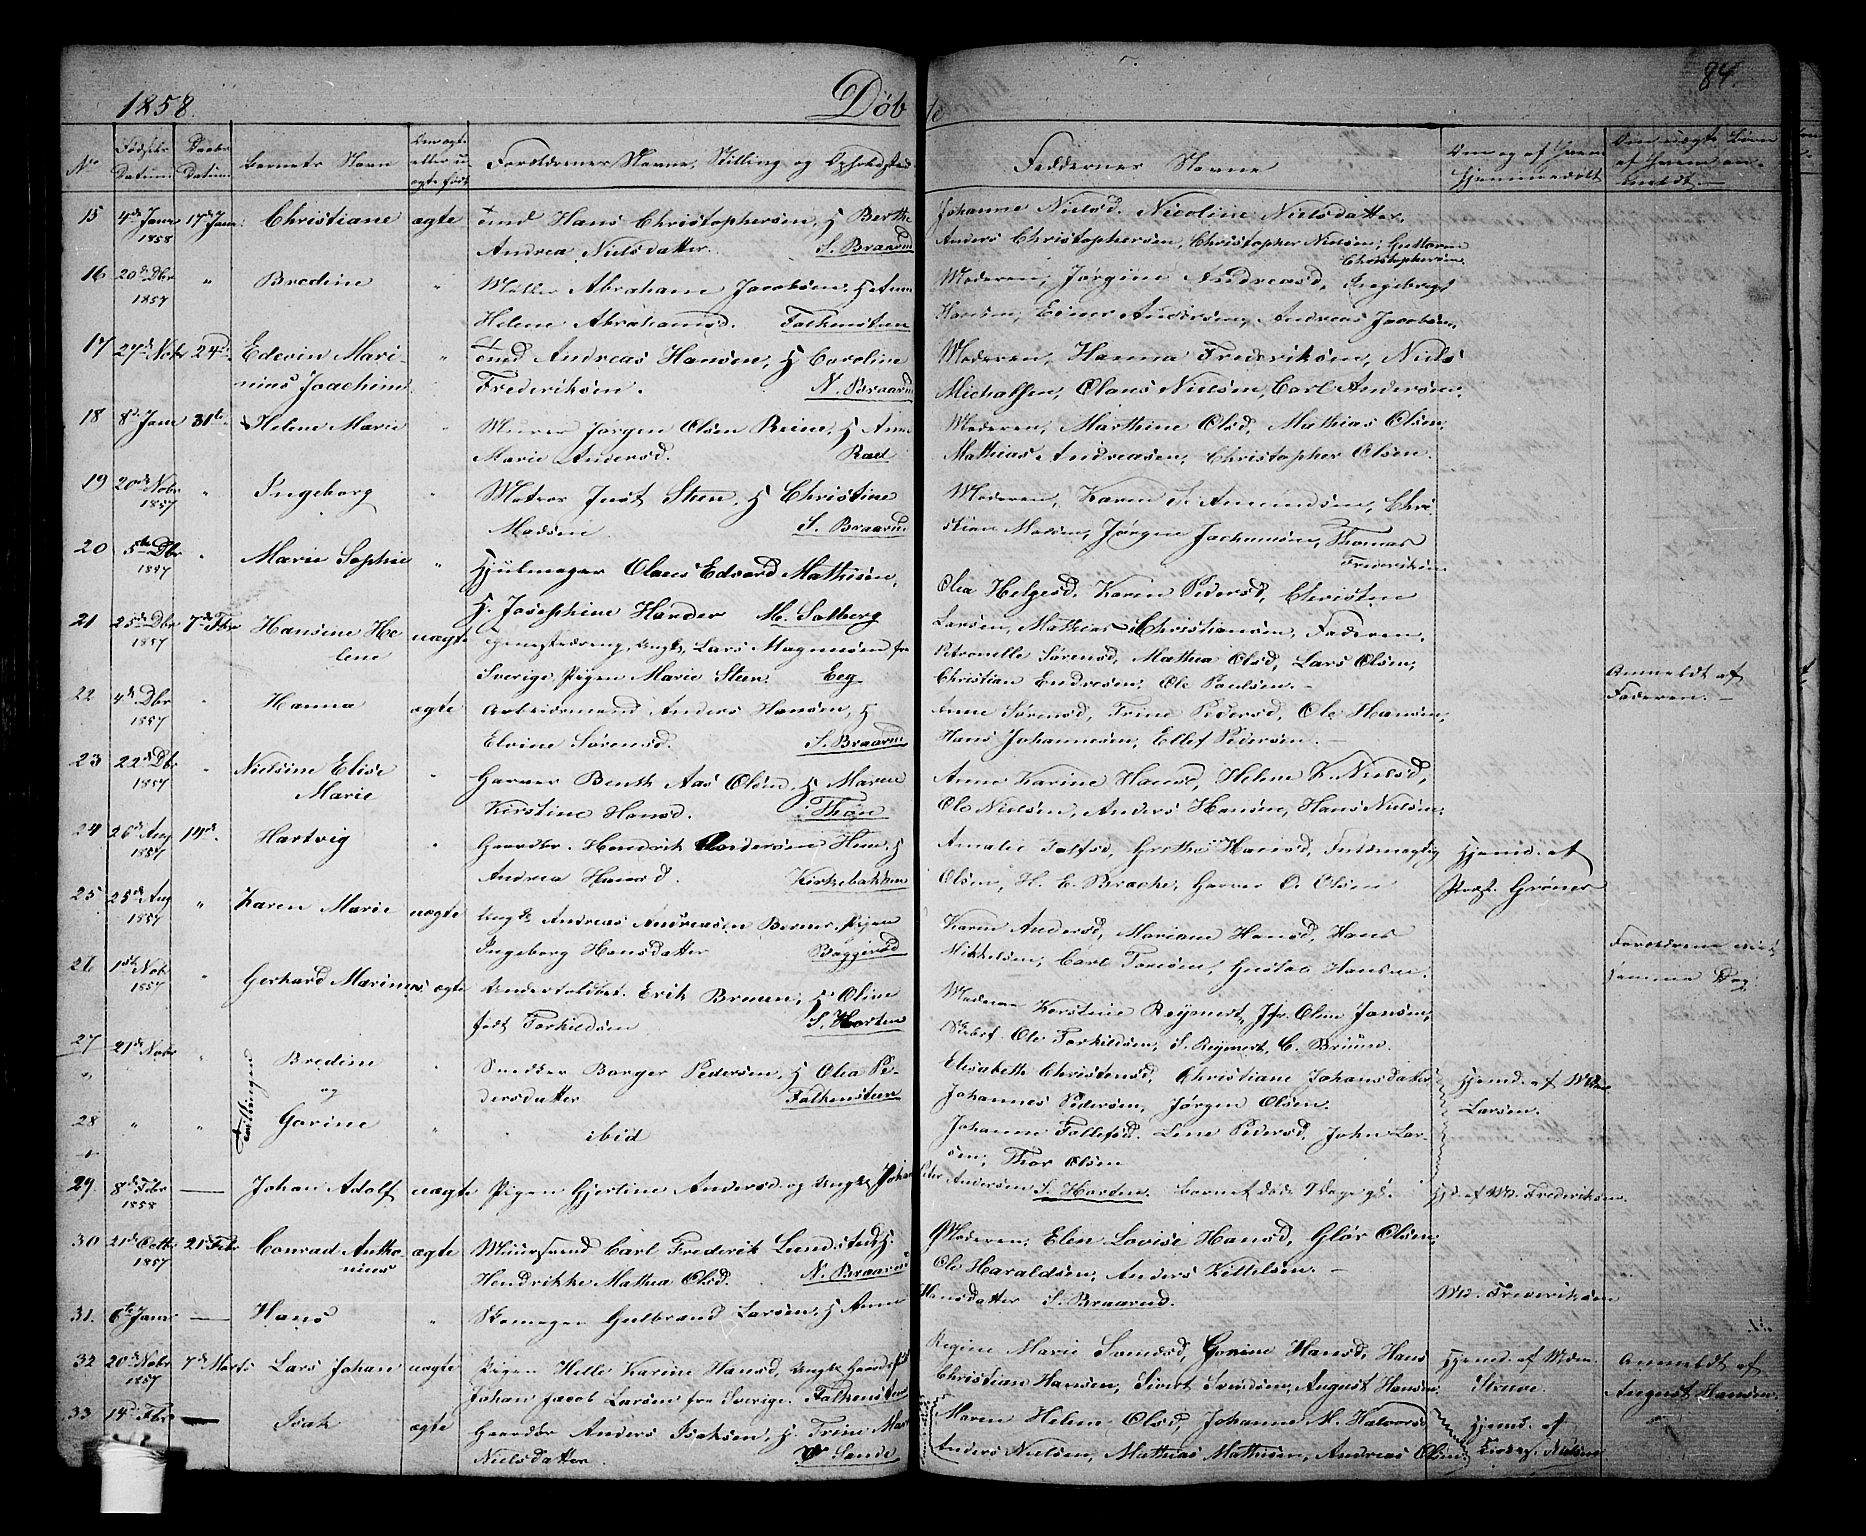 1858.
Døbte
84.
No
Fødsels Datum
Daabs Datum
Barnets Navn
Om ægte eller uægte født
Forældrenes Navne, Stilling og Opholdssted
Faddernes Navne
Om og af hvem hjemmedøbt
15 4de Janr 1858 17de Janr Christiane ægte Hans Christophersen, H Berthe
Andrea Nielsdatter. S. Braarud
Johanne Nielsd. Nicoline Nielsdatter,
Anders Christophersen, Christopher Nielsen, Guttorm
Christophersen.
16 20de Dbr 1857 " Bredine " Møller Abraham Jacobsen, H Anne
Helene Abrahamsd. Falkensteen
Moderen, Jørgine Andreasd, Ingebregt
Hansen, Einer Andersen, Andreas Jacobsen,
17 27de Nobr 24de Edevin Mari-
nius Joachim " Andreas Hansen, H Caroline
Frederiksen. N. Braarud
Moderen, Hanna Frederiksen, Niels
Michalsen, Olaus Nielsen, Carl Andersen,
18 8de Janr 31te Helene Marie " Murer Jørgen Olsen Reine, H Anne
Marie Andersd. Rød
Moderen, Marthine Olsd, Mathias Olsen,
Mathias Andreasen, Christopher Olsen.
19 20de Nobr 1857 " Ingeborg " Matros Just Steen, H Christine
Madsen. S. Braarud
Moderen, Karen S. Amundsen, Chri-
stian Madsen, Jørgen Jochumsen, Thomas
Frederiksen
20 5te Dbr 1857 " Marie Sophie " Hjulmager Olaus Edvard Mathisen,
H. Josephine Harder M. Solberg
Olea Helgesd, Karen Pedersd, Christen
Larsen, Mathias Christiansen, Faderen,
21 25de Dbr 1857 7de Febr Hansine He-
lene uægte Tjenestedreng, Ungk. Lars Magnusen fra
Sverige, Pigen Marie Steen. Eeg
Petronelle Sørensd, Mathea Olsd, Lars Olsen,
Christian Endresen, Ole Paulsen. —
Anmeldt af
Faderen. —
22 4de Dbr 1857 " Hanna ægte Arbeidsmand Anders Hansen, H
Elvine Sørensd. S. Braarud
Anne Sørensd, Trine Pedersd, Ole Hansen,
Hans Johannesen, Ellef Pedersen. —
23 22de Dbr 1857 " Nielsine Elise
Marie " Garver Benth Aas Olsen, H Maren
Kirstine Hansd. Thon
Anne Karine Hansd, Helene K. Nielsd,
Ole Nielsen, Anders Hansen, Hans Nielsen,
24 26de Aug 1857 14de Hartvig " Gaardbr. Hendrik Andersen Hem, H
Andrea Hansd. Kirkebakken
Amalie Tolfsd, Grethe Hansd, Fuldmægtig
Olsen, H. E. Brache, Garver O. Olsen
Hjemd. af
Præst. Grøner
25 25de Aug 1857 " Karen Marie uægte Ungk. Andreas Andreasen Berner, Pigen
Ingeborg Hansdatter Baggerød
Karen Andersd, Mariane Hansd, Hans
Mikkelsen, Carl Torisen, Gustav Hansen.
Forældrene viet
samme Dag
26 1ste Nobr 1857 " Gerhard Marinus ægte Erik Bruun, H Oline
født Torkildsen S. Horten
Madame Kirstine Reymert, Jfr. Oline Jansen,
Ole Torkildsen, S. Reymert, C. Bruun.
27 21de Nobr " Tvillinger Bredine
og
" Smeder Borger Pedersen, H Olea Pe-
dersdatter Falkensteen
Elisabeth Christensd, Christiane Johansdatter
Johannes Pedersen, Jørgen Olsen.
Hjemd. af
Larsen.
28 " " Gorine " ibid
Johanne Tollefsd. Lene Pedersd, John Lar-
sen, Thor Olsen
29. 8de Febr 1858 — Johan Adolf uægte Pigen Gjertine Andersd. og Ungk. Johan
Peter Andersen S. Horten. Barnet døde 9 Dage gl.
Hjd. af Md. Frederiksen.
30 21de Octb. 1857 21de Febr Conrad Antho-
nius ægte Carl Frederik Lundsted, H.
Hendrikke Mathea Olsd. N. Braarud
Moderen, Elen Lovise Hansd, Glør Olsen,
Ole Haraldsen, Anders Kittelsen. —
31. 6te Janr — Hans " Skomager Gulbrand Larsen, H Anne
Hansdatter S. Braarud.
Md. Frederiksen
32 20de Nobr 1857 7de Marts Lars Johan uægte Pigen Helle Karine Hansd, Ungk.
Johan Jacob Larsen fra Sverige. Falkensteen
Regine Marie Svendsd, Gorine Hansd, Hans
Christian Hansen, Sivert Svendsen, August Hansen
Hjemd. af Mdm.
Struve
Anmeldt af
August Hansen.
33 14de Febr — Isak ægte Gaardbr Anders Isaksen, H. Trine Mar.
Nielsdatter. Sande
Maren Helene Olsd, Johanne M. Halvorsd
Anders Nielsen, Mathias Mathisen, Andreas Olsen.
Hjemd. af
Nielsen